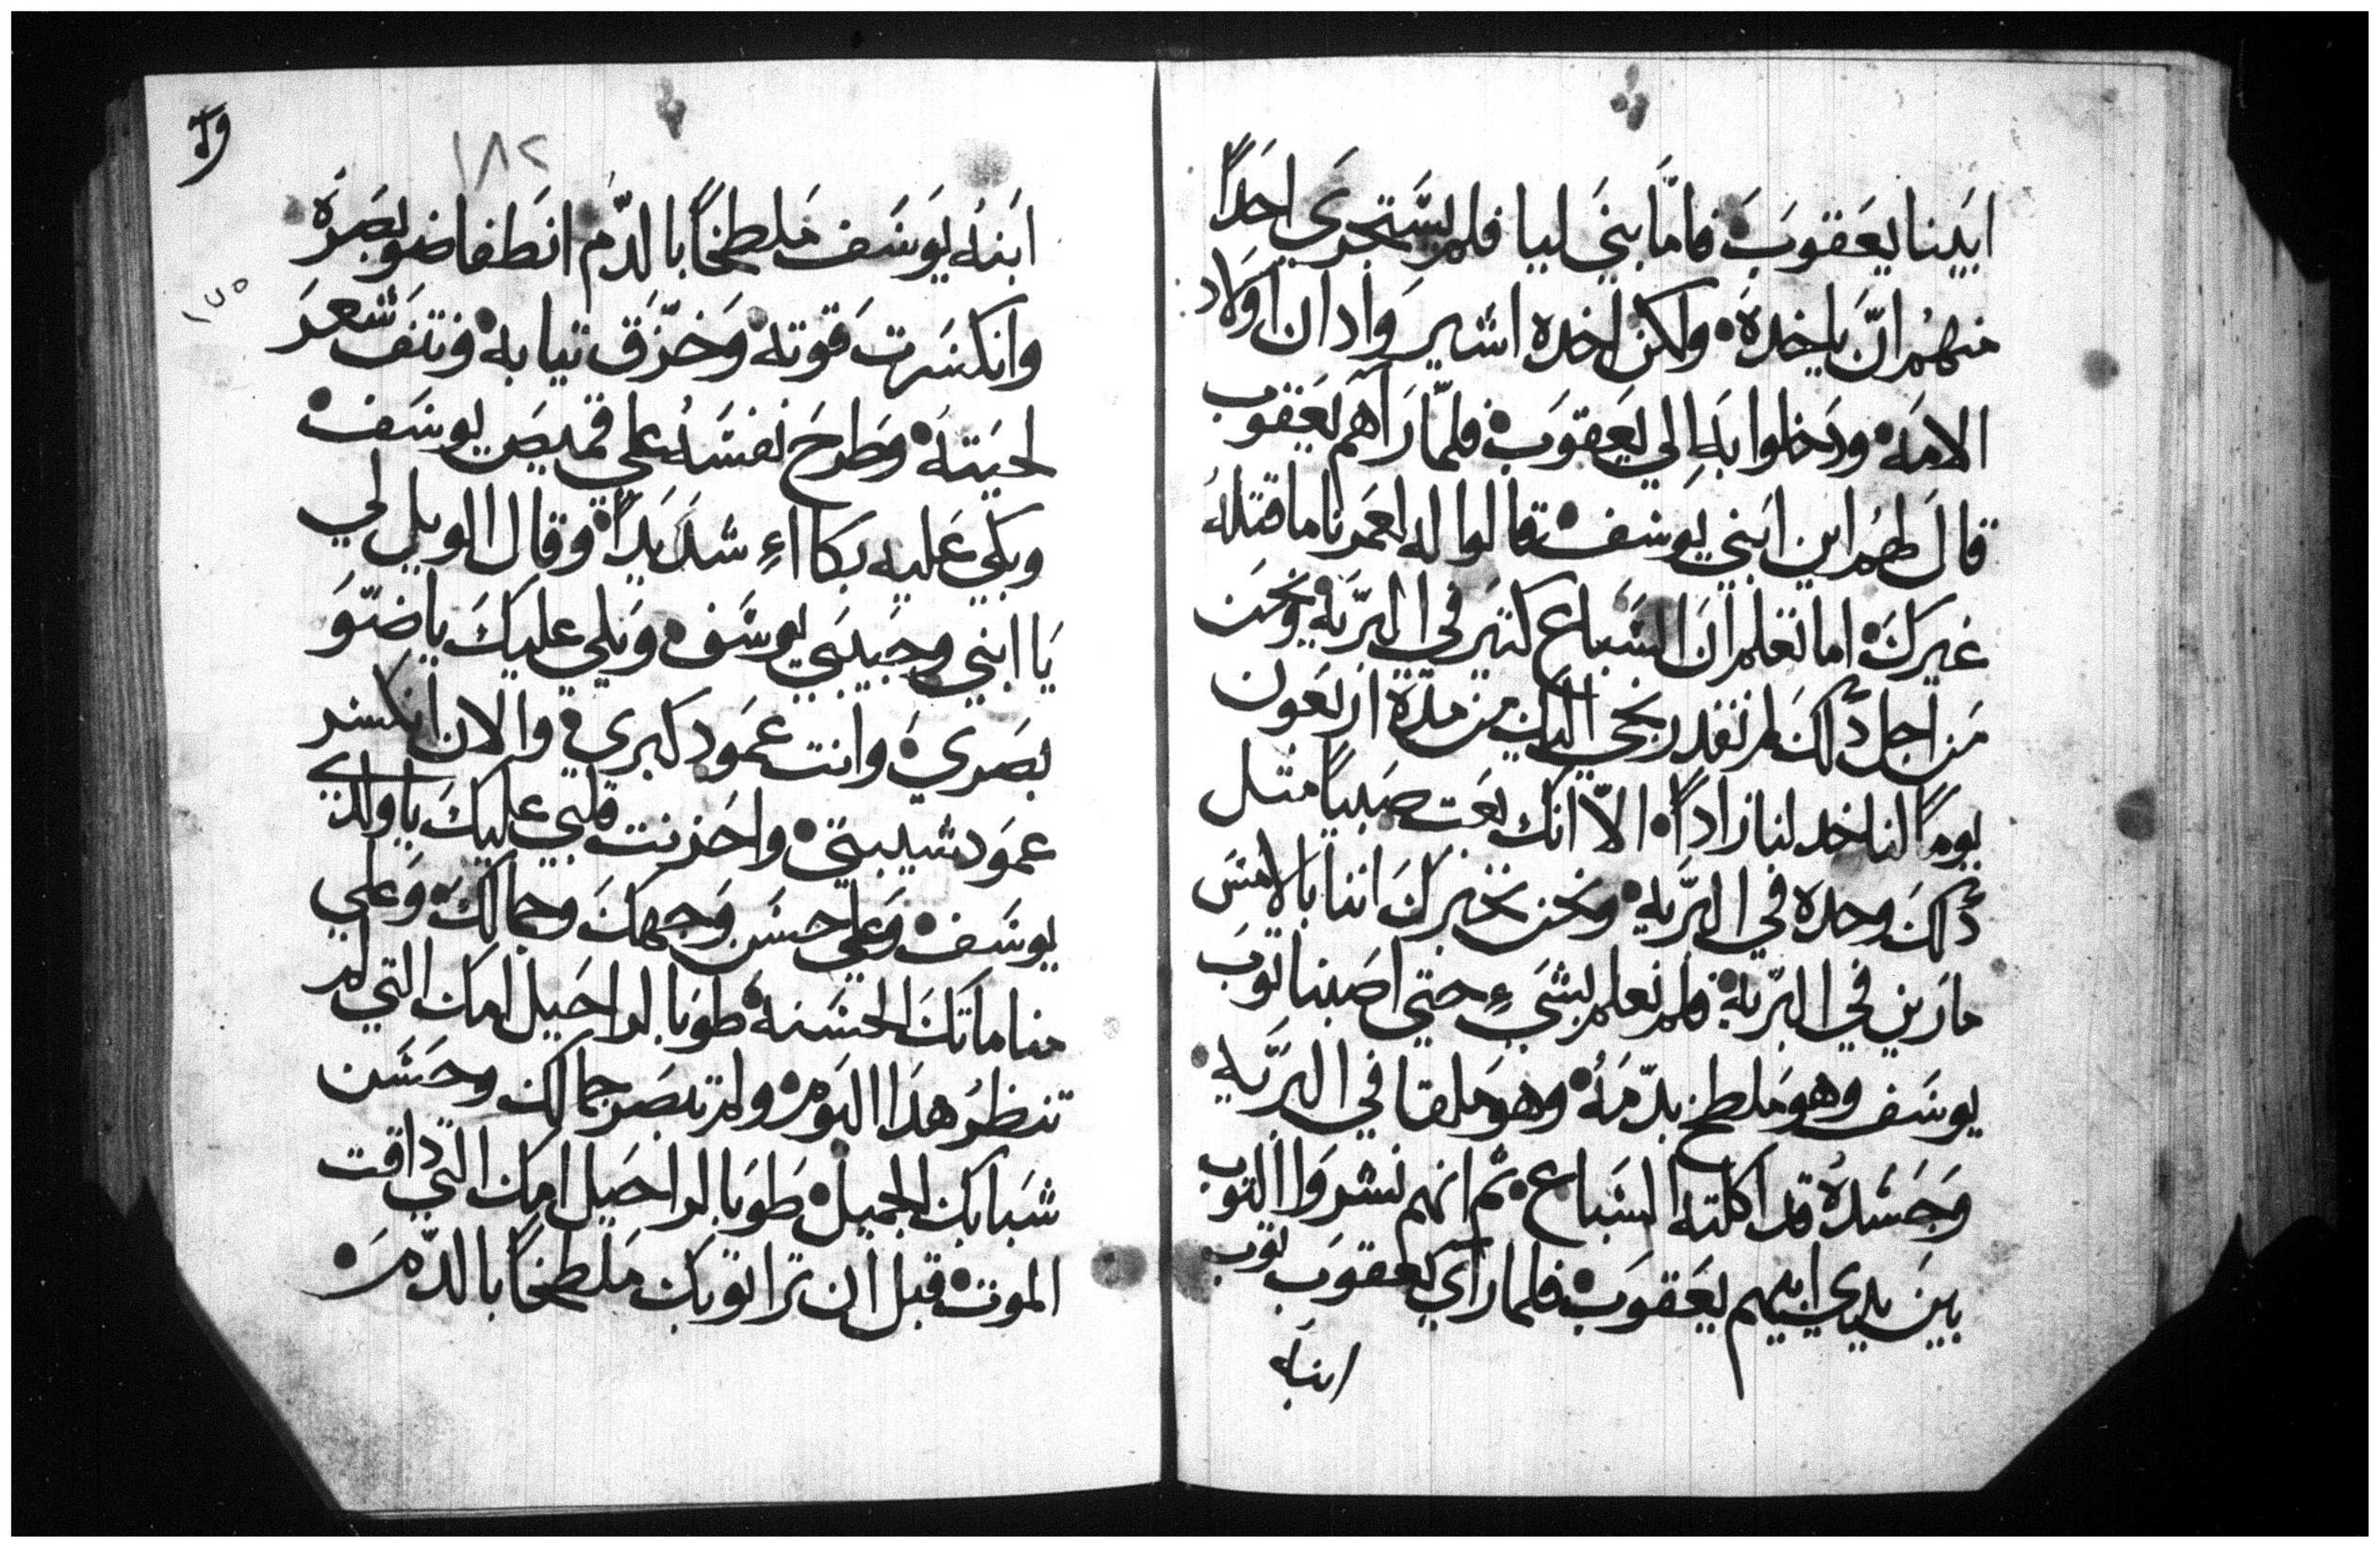 ابينا يعقوب فامّا بني ليا فلم يستجري احداً
منهم انّ ياخده ولكن اخده اشير وادان اولاد
الامه ودخلوا به الي يعقوب فلمّا رآهم يعقوب
قال لهم اين ابني يوسف قالوا له لعمرنا ما قتله
غيرك اما تعلم ان السباع كتير في البرّية ونحن
من اجل دلك لم نقدر نجي اليك من مدة اربعون
يوماً لناخد لنا زاداً الاّ انك بعت صبياً متل
دلك وحده في البرّية ونحن نخبرك اننا بالامس
مارين في البرّية فلم نعلم بشيءٍ حتي اصبنا توب
يوسف وهو ملطخ بدّمه وهو ملقا في البرّية
وجسده قد اكلته السباع تم انهم نشروا التوب
بين يدي ابيهم يعقوب فلما رآي يعقوب توب
ابنه
١٨٢
ابنه يوسف ملطخاً بالدّم انطفا ضو بصره
وانكسرت قوته وخزّق تيابه ونتف شعر
لحيته وطرح نفسه علي قميص يوسف
وبكي عليه بكااءٍ شديداً وقال الويل لي
يا ابني وحبيبي يوسف ويلي عليك يا ضوّ
بصري وانت عمود كبري والان انكسر
عمود شيبتي واحزنت قلبي عليك يا ولدي
يوسف وعلي حسن وجهك وجمالك وعلي
مناماتك الحسنه طوبا لراحيل امك التي لم
تنظر هدا اليوم ولم تبصر جمالك وحسن
شبابك الجميل طوبا لراحيل امك التي داقت
الموت قبل ان ترا توبك ملطخاً بالدّم